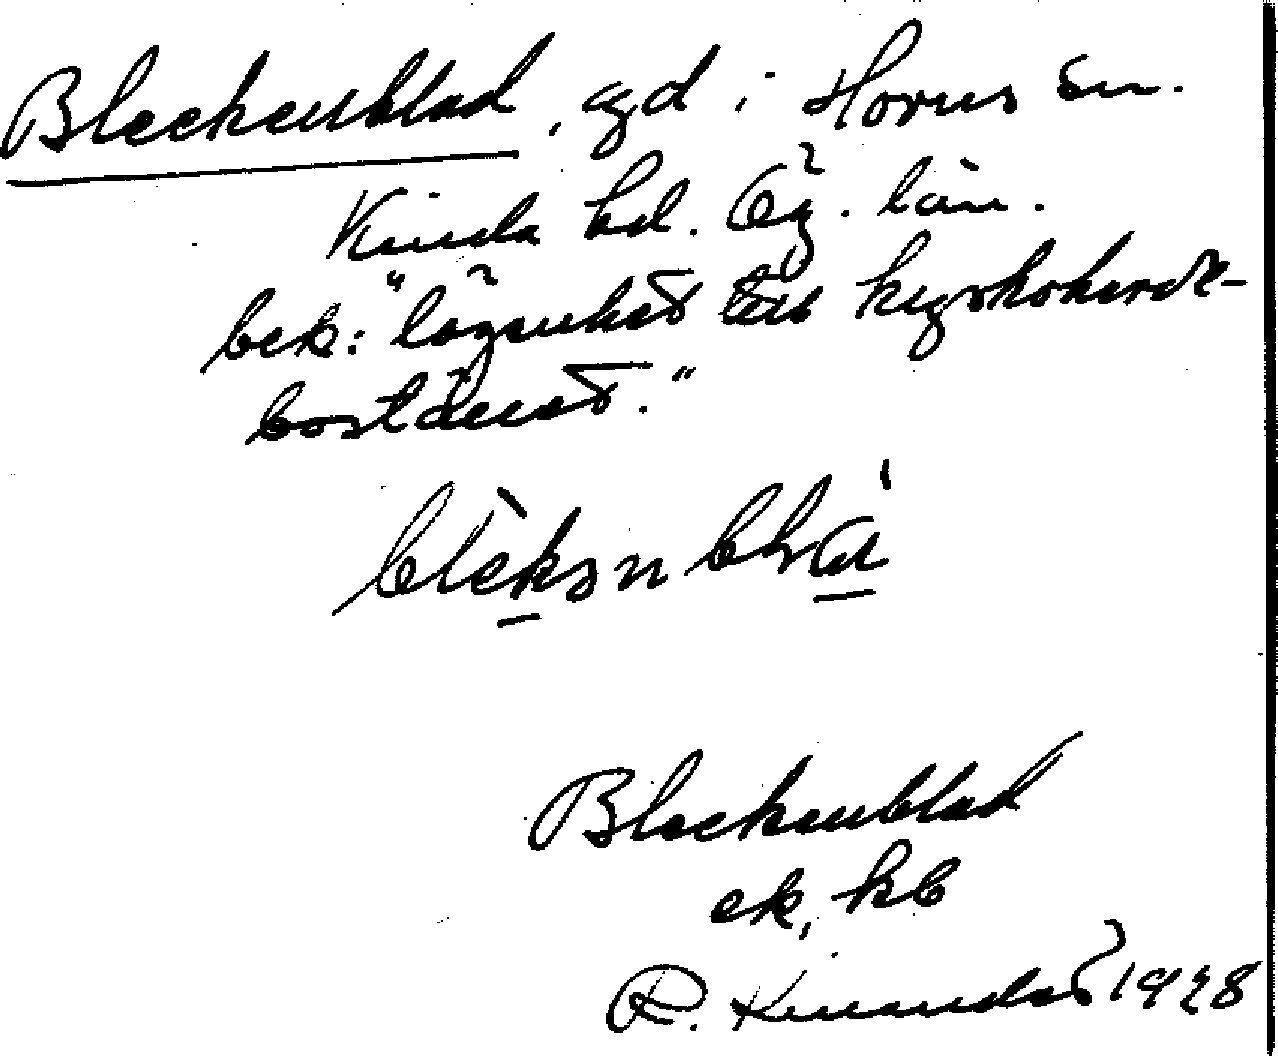 Bleckenblad, agd i Horns sn.
Kinda hd. Ög. län.
bek: "lägenhet till kyrkoherde-
bostället."
blèkən blá
Bleckenblad
ek, kb
R. 1928